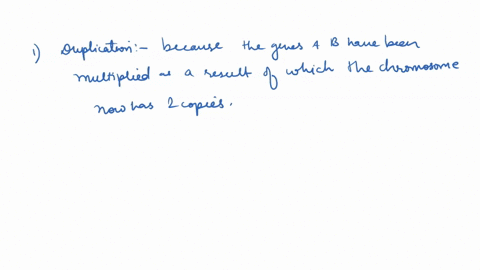 1) Duplication:- because the genes A B have been
multiplied as a result of which the chromosome
now has 2 copies.